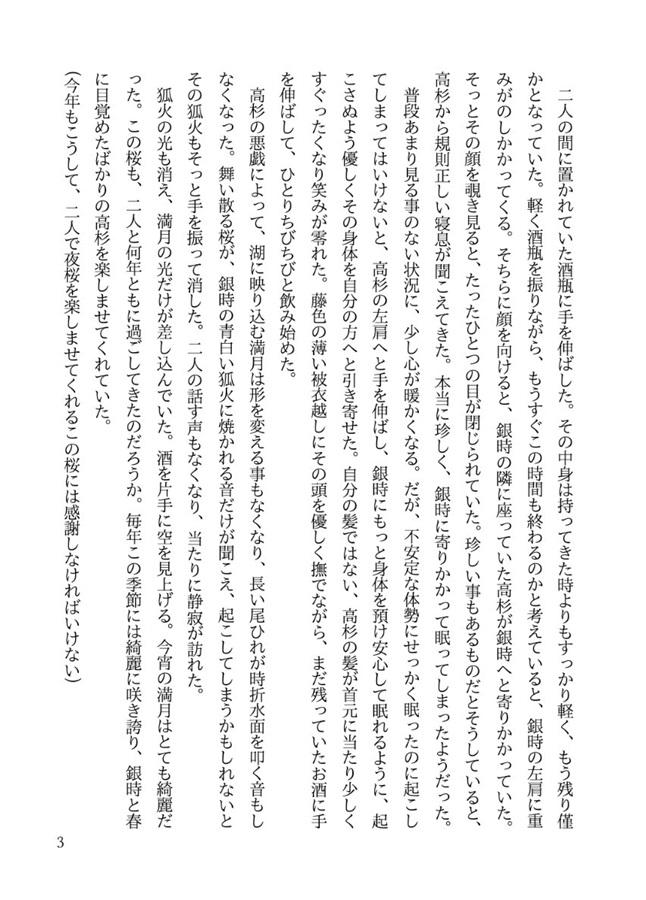 二人の間に置かれていた酒瓶に手を伸ばした。その中身は持ってきた時よりもすっかり軽く、もう残り僅
かとなっていた。軽く酒瓶を振りながら、もうすぐこの時間も終わるのかと考えていると、銀時の左肩に重
みがのしかかってくる。そちらに顔を向けると、銀時の隣に座っていた高杉が銀時へと寄りかかっていた。
そっとその顔を覗き見ると、たったひとつの目が閉じられていた。珍しい事もあるものだとそうしていると、
高杉から規則正しい寝息が聞こえてきた。本当に珍しく、銀時に寄りかかって眠ってしまったようだった。
　普段あまり見る事のない状況に、少し心が暖かくなる。だが、不安定な体勢にせっかく眠ったのに起こし
てしまってはいけないと、高杉の左肩へと手を伸ばし、銀時にもっと身体を預け安心して眠れるように、起
こさぬよう優しくその身体を自分の方へと引き寄せた。自分の髪ではない、高杉の髪が首元に当たり少しく
すぐったくなり笑みが零れた。藤色の薄い被衣越しにその頭を優しく撫でながら、まだ残っていたお酒に手
を伸ばして、ひとりちびちびと飲み始めた。
　高杉の悪戯によって、湖に映り込む満月は形を変える事もなくなり、長い尾ひれが時折水面を叩く音もし
なくなった。舞い散る桜が、銀時の青白い狐火に焼かれる音だけが聞こえ、起こしてしまうかもしれないと
その狐火もそっと手を振って消した。二人の話す声もなくなり、当たりに静寂が訪れた。
　狐火の光も消え、満月の光だけが差し込んでいた。酒を片手に空を見上げる。今宵の満月はとても綺麗だ
った。この桜も、二人と何年ともに過ごしてきたのだろうか。毎年この季節には綺麗に咲き誇り、銀時と春
に目覚めたばかりの高杉を楽しませてくれていた。
(今年もこうして、二人で夜桜を楽しませてくれるこの桜には感謝しなければいけない)
3